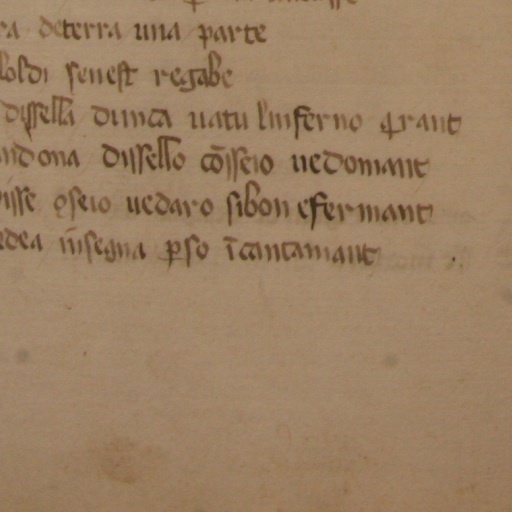 ra deterra una parte
loldi senest regabe
dissella dunca uatu linferno qrant
ndona dissello cōsseio uedomant
isse ꝯseio uedaro sibon efermant
edea īnsegna ꝑso īcantamant